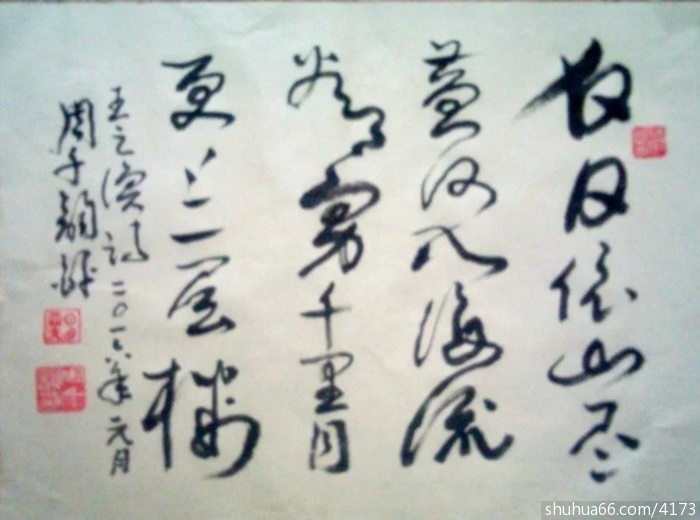 日依山尽
黄河入海流
欲窮千里目
更上一层楼
王之涣诗二〇一六年元月
周
shuhua66.com/4173